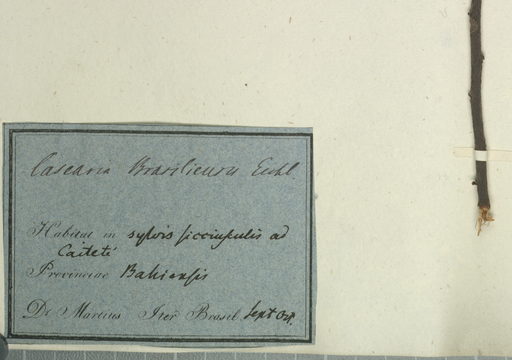 Casearia Brasiliensis Eichl
Habitat in sylvis sicciusculis ad
Caiteté
Provinciae Bahiensis
Dr. Martius Iter Brasil. Sept Oct.